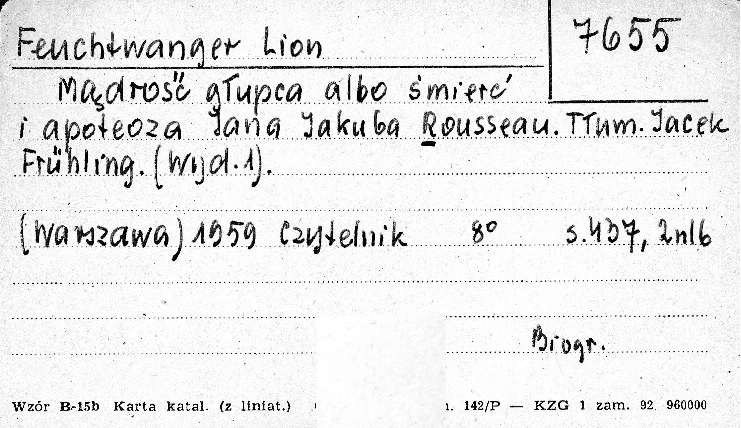 Feuchtwanger Lion
7655
Mądrość głupca albo śmierć
i apoteoza Jana Jakuba Rousseau. Tłum. Jacek
Frühling. (Wyd. 1).
(Warszawa) 1959 Czytelnik 8° s. 437, 2nlb
Biogr.
Wzór B-15b Karta katal. (z liniat.) 142/P — KZG 1 zam. 92 960000